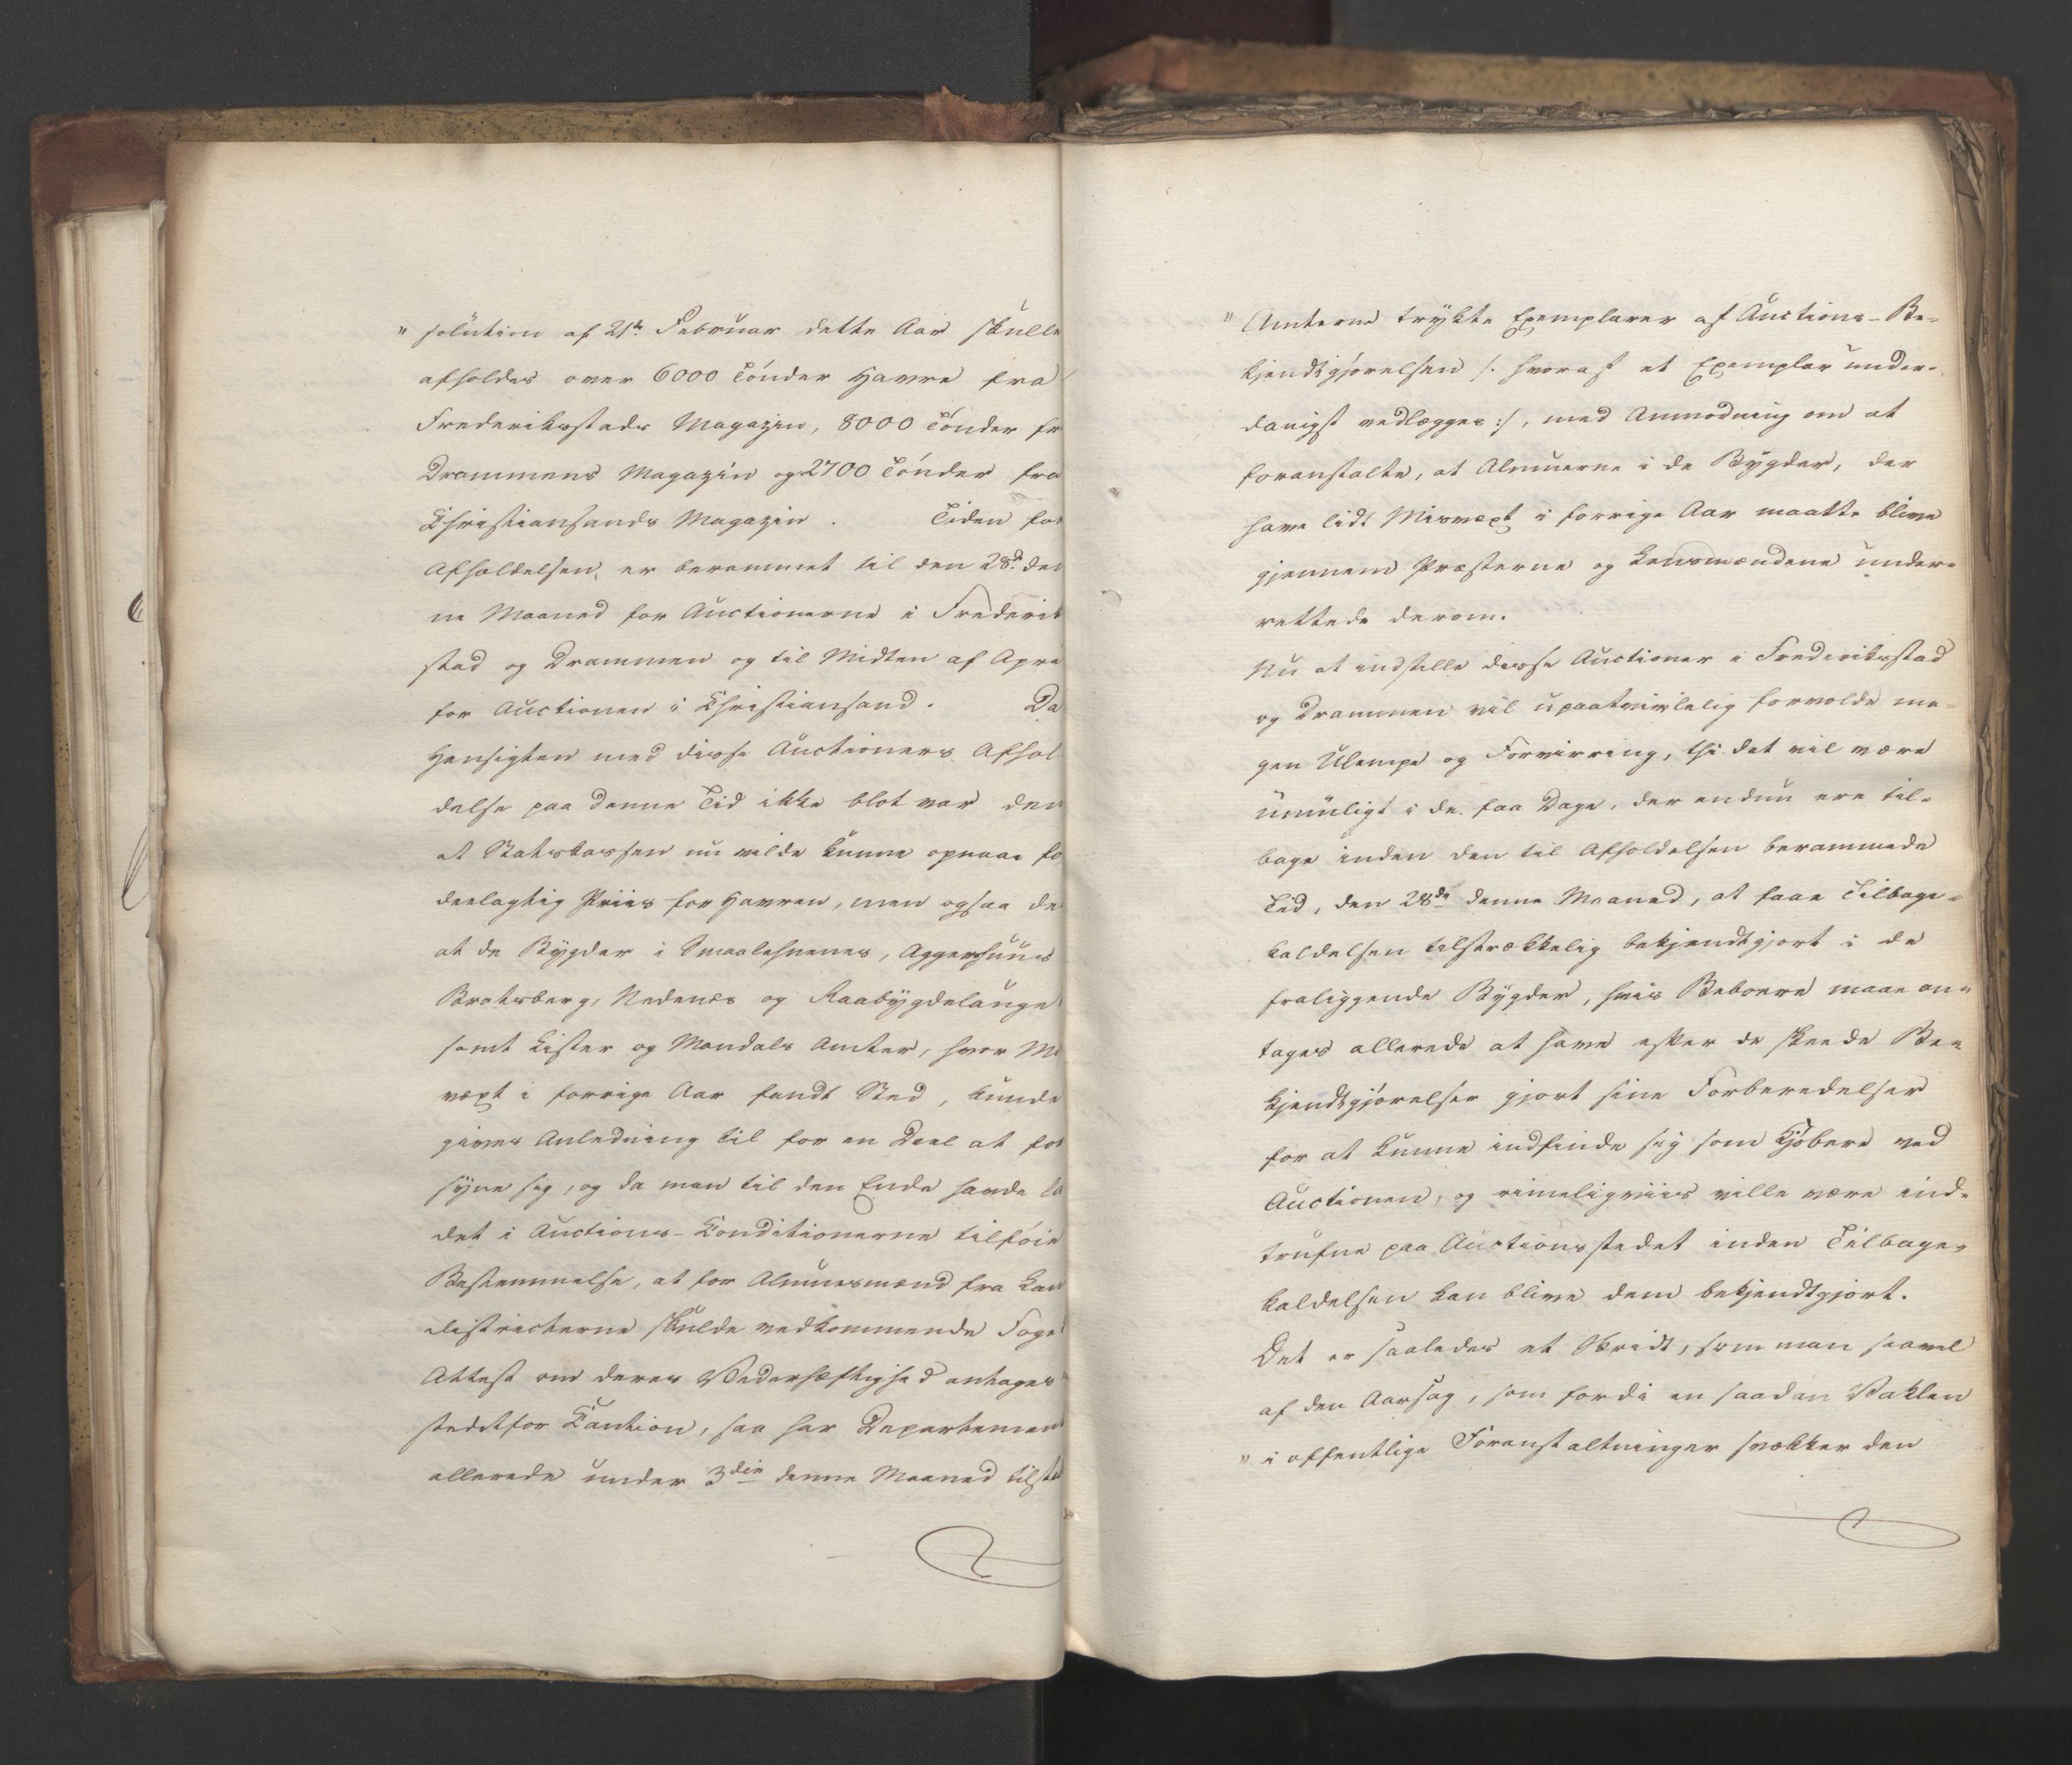 " solution af 21de Februar dette Aar skulle
afholdes over 6000 Tönder Havre fra
Frederiksstads Magazin, 8000 Tönder fr
Drammens Magazin og 2700 Tönder fra
Christiansands Magazin. Tiden for
Afholdelsen, er berammet til den 28de den
ne Maaned for Auctionerne i Frederik
stad og Drammen og til Midten af Apri
for Auctionen i Christiansand. Da
Hensigten med disse Auctioners Afhol
delse paa denne Tid ikke blot var den
at Statskassen nu vilde kunne opnaae fo
deelagtig Priis for Havren, men ogsaa de
at de Bygder i Smaalehnenes, Aggershuus
Bratsberg, Nedenes og Raabygdelauge
samt Lister og Mandals Amter, hvor Mi
væxt i forrige Aar fandt Sted, kunde
gives Anledning til for en Deel at for
syne sig, og da man til den Ende havde la
det i Auctions-Conditionerne tilföie
Bestemmelse, at for Almuesmænd fra Lan
districterne skulde vedkommende Foge
Attest om deres Vederhæftighed antages
stedetfor Caution, saa har Departemen
allerede under 3die denne Maaned tilst
" Amterne trykte Exemplarer af Auctions-Be-
kjendtgjörelsen /: hvoraf et Exemplar under-
danigst vedlægges :/, med Anmodning om at
foranstalte, at Almuerne i de Bygder, der
have lidt Misvæxt i forrige Aar maatte blive
gjennem Præsterne og Lensmændene under-
rettede derom.
Nu at indstille disse Auctioner i Frederiksstad
og Drammen vil upaatvivlelig forvolde me-
gen Ulempe og Forvirring, thi det vil være
umuligt i de faa Dage, der endnu ere til-
bage inden den til Afholdelsen berammede
Tid, den 28de denne Maaned, at faae Tilbage-
kaldelsen tilstrækkelig bekjendtgjort i de
fraliggende Bygder, hvis Beboere maae an-
tages allerede at have efter de skeede Be-
kjendtgjörelser gjort sine Forberedelser
for at kunne indfinde sig som Kjöbere ved
Auctionen, og rimeligviis ville være ind-
trufne paa Auctionsstedet inden Tilbage-
kaldelsen kan blive dem bekjendtgjort.
Det er saaledes et Skridt, som man saavel
af den Aarsag, som fordi en saadan Vaklen
" i offentlige Foranstaltninger svækker den